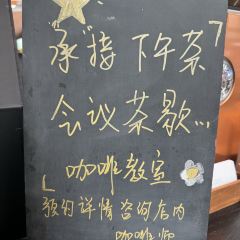 "承"接 下午茶
会议茶歇...
咖啡教室
预约详情咨询店内
咖啡师